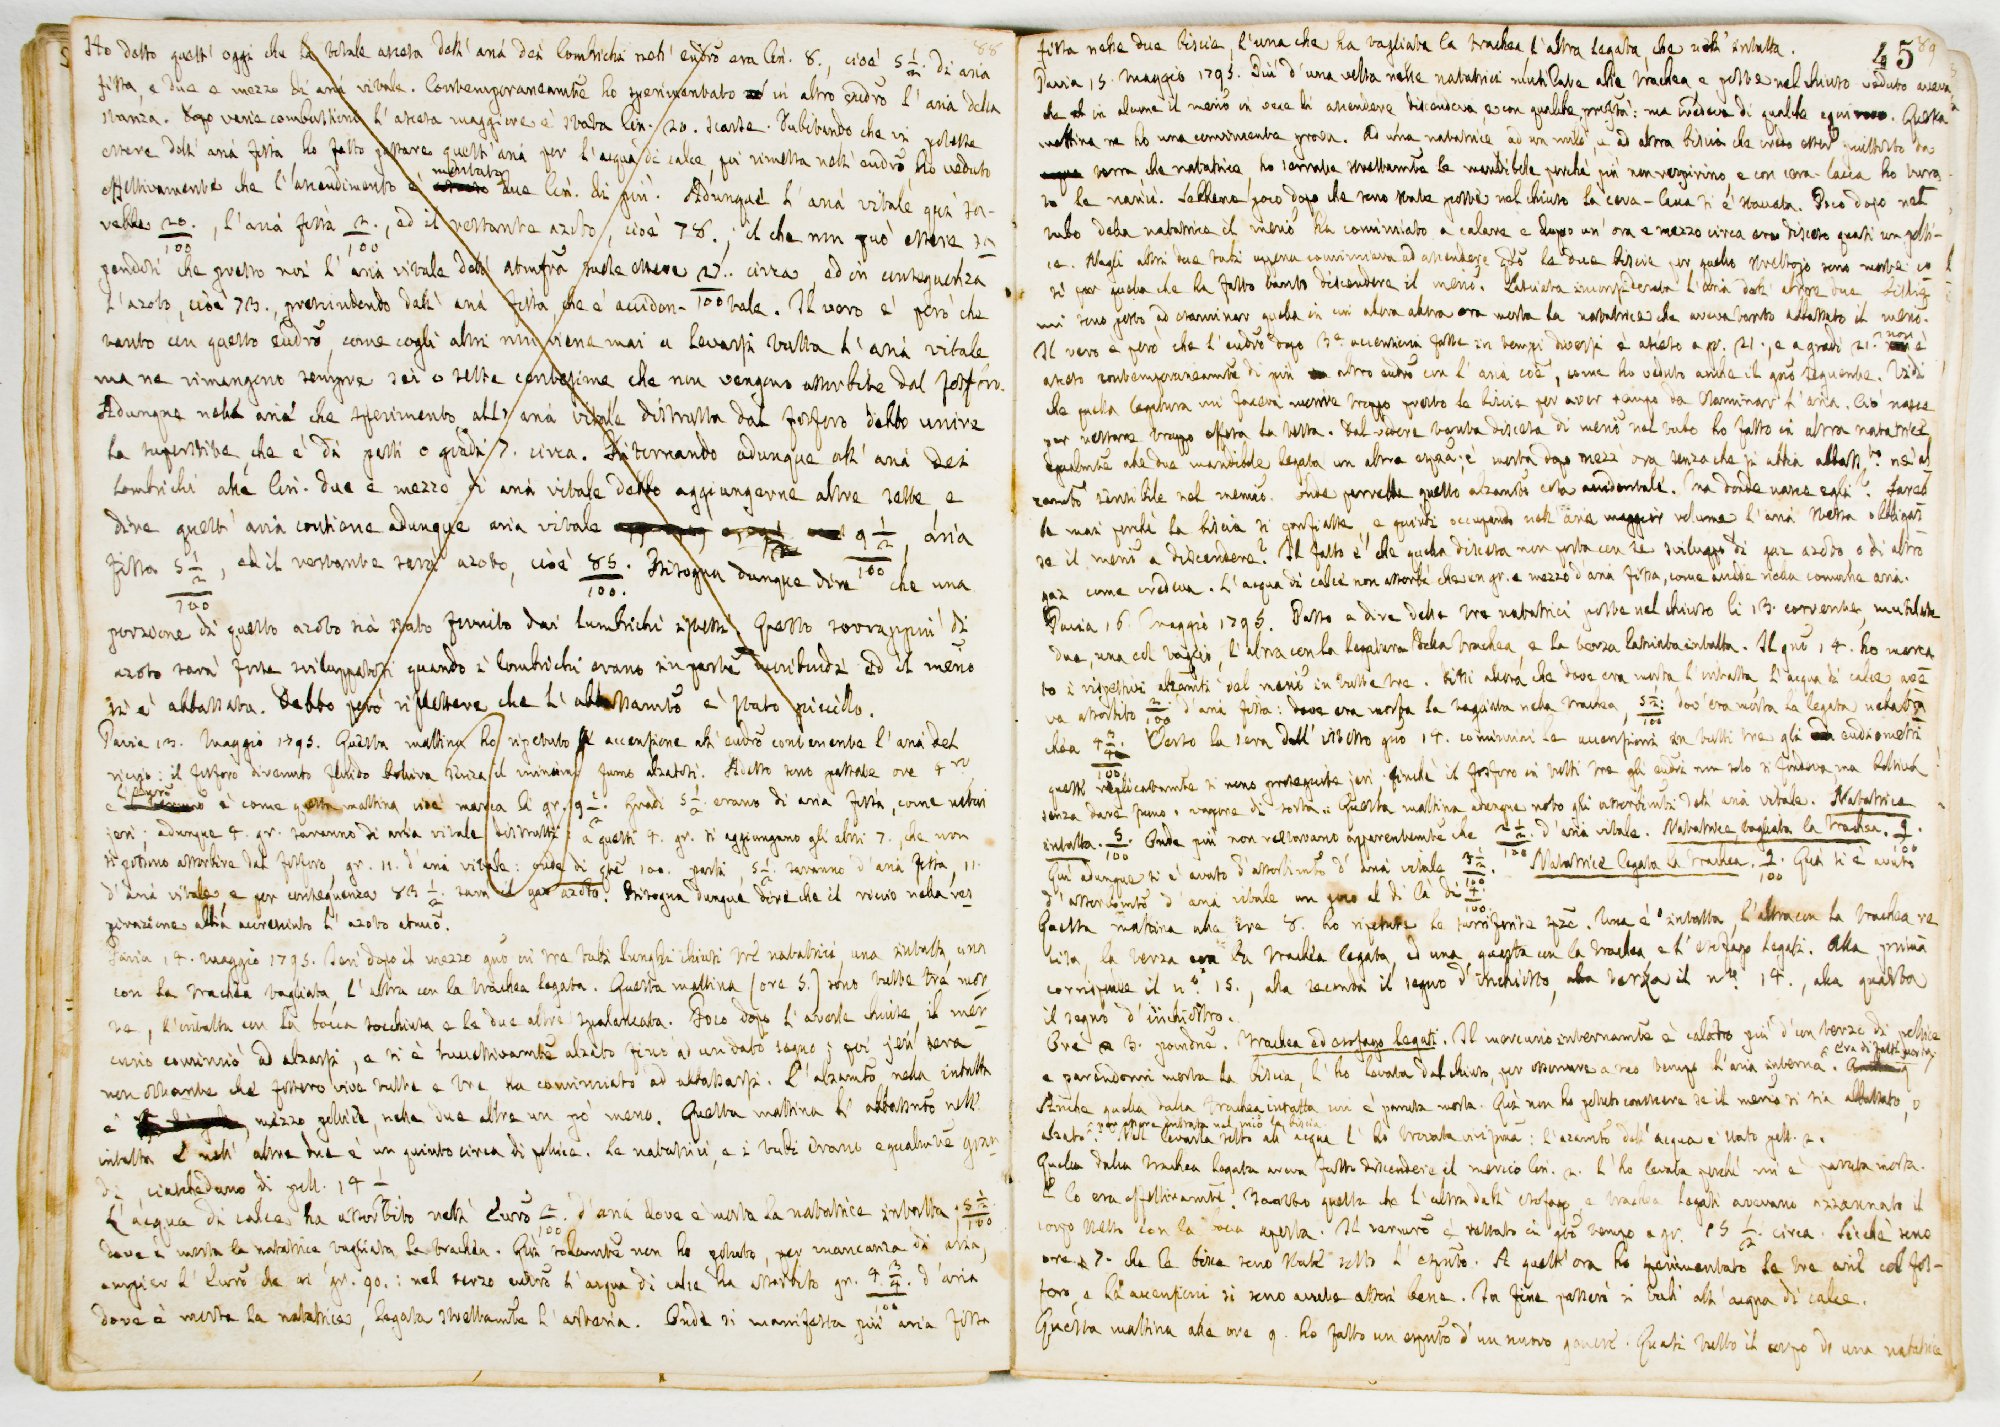 88
Ho detto quest' oggi che la totale ascesa dell' aria dei lombrichi nell' eudro era lin. 8., cioè 5 1/2 di aria
fissa, e due e mezzo di aria vitale. Contemporaneamte ho sperimentato in altro eudro l' aria della
stanza. Dopo varie combustioni l' ascesa maggiore è stata lin. 20. scarse. Dubitando che vi potesse
essere dell' aria fissa, ho fatto passare quest' aria per l' acqua di calce, poi rimessa nell' eudro ho veduto
effettivamente che l' ascendimento è montato due lin. di più. Adunque l' aria vitale qui sa-
rebbe 20/100, l' aria fissa 2/100, ed il restante azoto, cioè 78.; il che non può essere sa
pendosi che presso noi l' aria vitale dell' atmosfra suole essere 27/100 circa ed in conseguenza
l' azoto, cioè 73., prescindendo dall' aria fissa, che è acciden- tale. Il vero è però che
tanto con questo eudro, come cogli altri non viene mai a levarsi tutta l' aria vitale
ma ne rimangono sempre sei o sette centesime che non vengono assorbite dal fosforo.
Adunque nell' aria che sperimento all' aria vitale distrutta dal fosforo debbo unire
la superstite che è di parti o gradi 7. circa. Ritornando adunque all' aria dei
lombrichi alle lin. due e mezzo di aria vitale debbo aggiungerne altre sette, e
dire quest' aria contiene adunque aria vitale 9 1/2/100, aria
fissa 5 1/2/100, ed il restante sarà azoto, cioè 85/100. Bisogna dunque dire che una
porzione di questo azoto sia stato fornito dai lumbrichi stessi. Questo sovrappiù di
azoto sarà forse sviluppatosi quando i lombrichi erano in parte imputriditi ed il merio
si è abbassato. Debbo però riflettere che l' abbassamto è stato piccolo.
Pavia 13. Maggio 1795. Questa mattina ho ripetuto l' accensione all' eudro contenente l' aria del
riccio: il fosforo divenuto fluido bolliva senza il minimo fumo alzatosi. Adesso sono passate ore 4
e l' eudro è come questa mattina cioè marca li gr. 9 1/2. Gradi 5 1/2 erano di aria fissa, come notai
jeri; adunque 4. gr. saranno di aria vitale distrutti: a questi 4. gr. si aggiungano gli altri 7., che non
si potono assorbire dal fosforo, gr. 11. d' aria vitale: onde di qte 100. parti, 5 1/2 saranno d' aria fissa, 11.
d' aria vitale, e per conseguenza 83 1/2 sarà il gaz azoto. Bisogna dunque dire che il riccio nella res
pirazione abbia accresciuto l' azoto atmco.
Pavia 14. Maggio 1795. Jeri dopo il mezzo gno in tre tubi lunghi chiusi tre natatrici, una intatta, una
con la trachea tagliata, l' altra con la trachea legata. Questa mattina (ore 5.) sono tutte tre mor
te, l' intatta con la bocca socchiusa e le due altre spalancata. Poco dopo l' averle chiuse, il mer
curio cominciò ad alzarsi, e si è successivamte alzato fino ad un dato segno; poi jeri sera
non ostante che fossero vive tutte e tre ha cominciato ad abbassarsi. L' alzamto nella intatta
è mezzo pollice, nelle due altre un po' meno. Questa mattina l' abbassmto nell'
intatta e nell' altre due è un quinto circa di pollice. Le natatrici, e i tubi erano egualmte gran
di, ciascheduno di poll. 14
L' acqua di calce ha assorbito nell' Eudro 2/100 d' aria dove è morta la natatrice intatta: 5 1/2/100
dove è morta la natatrice tagliata la trachea. Qui solamte non ho potuto, per mancanza di aria,
empier l' Eudro che ai gr. 90.: nel terzo eudro l' acqua di calce ha assorbito gr. 4 3/4/100 d' aria
dove è morta la natatrice, legata strettamte l' arteria. Onde si manifesta più aria fissa
45 89
fissa nelle due biscie, l' una che ha tagliata la trachea l' altra legata, che nell' intatta.
Pavia 15. Maggio 1795. Più d' una volta nelle natatrici mutilate alla trachea e poste nel chiuso veduto aveva
che in alcune il merio in vece di ascendere discendeva e con qualche prestza: ma credeva di qualche equivoco. Questa
mattina ne ho una convincente prova. Ad una natatrice ad un nido, e ad altra biscia che credo esser piuttosto da
terra che natatrice ho serrate strettamte le mandibole perchè più non respirino e con cera-lacca ho tura-
to le narici. Sebbene poco dopo che sono state poste nel chiuso la cera-lacca si è staccata. Poco dopo nel
tubo della natatrice il merio ha cominciato a calare e dopo un' ora e mezzo circa era disceso quasi un polli-
ce. Negli altri due tubi appena cominciava ad ascendere qdo le due biscie per quello strettojo sono morte co
sì per quella che ha fatto tanto discendere il merio. Lasciata inconsiderata l' aria dell' altre due bestie
mi sono posto ad esaminar quella in cui era morta la natatrice che aveva tanto abbassato il merio.
Il vero è però che l' eudro dopo 3e accensioni fatte in tempi diversi è asceso a gr. 21., e a gradi 21. non è
asceso contemporaneamte di più altro eudro con l' aria coe, come ho veduto anche il gno seguente. Vidi
che quella legatura mi faceva morire troppo presto le biscie per aver tempo da esaminar l' aria. Ciò nasce
per restare troppo offesa la testa. Dal vedere tanta discesa di merio nel tubo ho fatto in altra natatrice
egualmte alle due mandibole legata un altra espza: è morta dopo mezz' ora senza che vi abbia abbassto nè al
zamto sensibile nel merio. Onde parrebbe quello alzamto cosa accidentale. Ma donde nasce egli? Sareb
be mai perchè la biscia si gonfiasse e quindi occupando nell' aria maggior volume l' aria stessa obbligas
se il merio a discendere? Il fatto è che quella discesa non porta con se sviluppo di gaz azoto o di altro
gaz come credeva. L' acqua di calce non assorbì che un gr. e mezzo d' aria fissa, come accade nella comune aria.
Pavia 16. Maggio 1795. Passo a dire delle tre natatrici poste nel chiuso li 13. corrente, mutilate
due, una col taglio, l' altra con la legatura della trachea, e la terza lasciata intatta. Il gno 14. ho marca
to i rispettivi alzamti del merio in tutte tre. Dissi allora che dove era morta l' intatta l' acqua di calce ave
va assorbito 2/100 d' aria fissa: dove era morta la tagliata nella trachea, 5 1/2/100 dov' era morta la legata nella tra
chea 4 3/4/100. Verso la sera dell' istesso gno 14. cominciai le accensioni in tutti tre gli eudiometri
queste replicatamte si sono proseguite jeri finchè il fosforo in tutti tre gli eudri non solo si fondeva ma bolliva
senza dare fumo, o vapore di sorta. Questa mattina adunque noto gli assorbimti dell' aria vitale. Natatrice
intatta. 5/100. Onde più non restavano apparentemte che 2 1/2/100 d' aria vitale. Natatrice, tagliata la trachea. 9/100.
Qui adunque si è avuto d' assorbimto d' aria vitale 3 1/2/100. Natatrice legata la trachea. 9/100. Qui si è avuto
d' assorbimto d' aria vitale un poco al di là di 4/100.
Questa mattina alle ore 8. ho ripetute le surriferite spze. Una è intatta, l' altra con la trachea re
cisa, la terza la trachea legata, ed una quarta con la trachea, e l' esofago legati. Alla prima
corrisponde il no 15., alla seconda il segno d' inchiostro, alla terza il no 14., alla quarta
il segno d' inchiostro.
Ore 3. pomdne. Trachea ed esofago legati. Il mercurio internamte è calato più d' un terzo di pollice
e parendomi morta la biscia, l' ho levata dal chiuso, per osservare a suo tempo l' aria interna. Era di fatti morta.
Anche quella dalla trachea intatta mi è paruta morta. Quì non ho potuto conoscere se il merio si sia abbassato, o
alzato per essere entrata nel merio la biscia. Nel levarla sotto all' acqua l' ho trovata vivissma: l' azamto dell' acqua è stato poll. 2.
Quella dalla trachea legata aveva fatto discendere il mercio lin. 2. L' ho levata perchè mi è paruta morta.
E lo era effettivamte. Tanto questa che l' altra dall' esofago e trachea legati avevano azzannato il
corpo stesso con la boca aperta. Il termetro è restato in qto tempo a gr. 15 1/2 circa. Sicchè sono
ore 7. che le biscie sono state sotto l' espmto. A quest' ora ho sperimentato le tre arie col fos-
foro, e le accensioni si sono avute assai bene. In fine passerò i tubi all' acqua di calce.
Questa mattina alle ore 9. ho fatto un espmto d' un nuovo genere. Quasi tutto il corpo di una natatrice